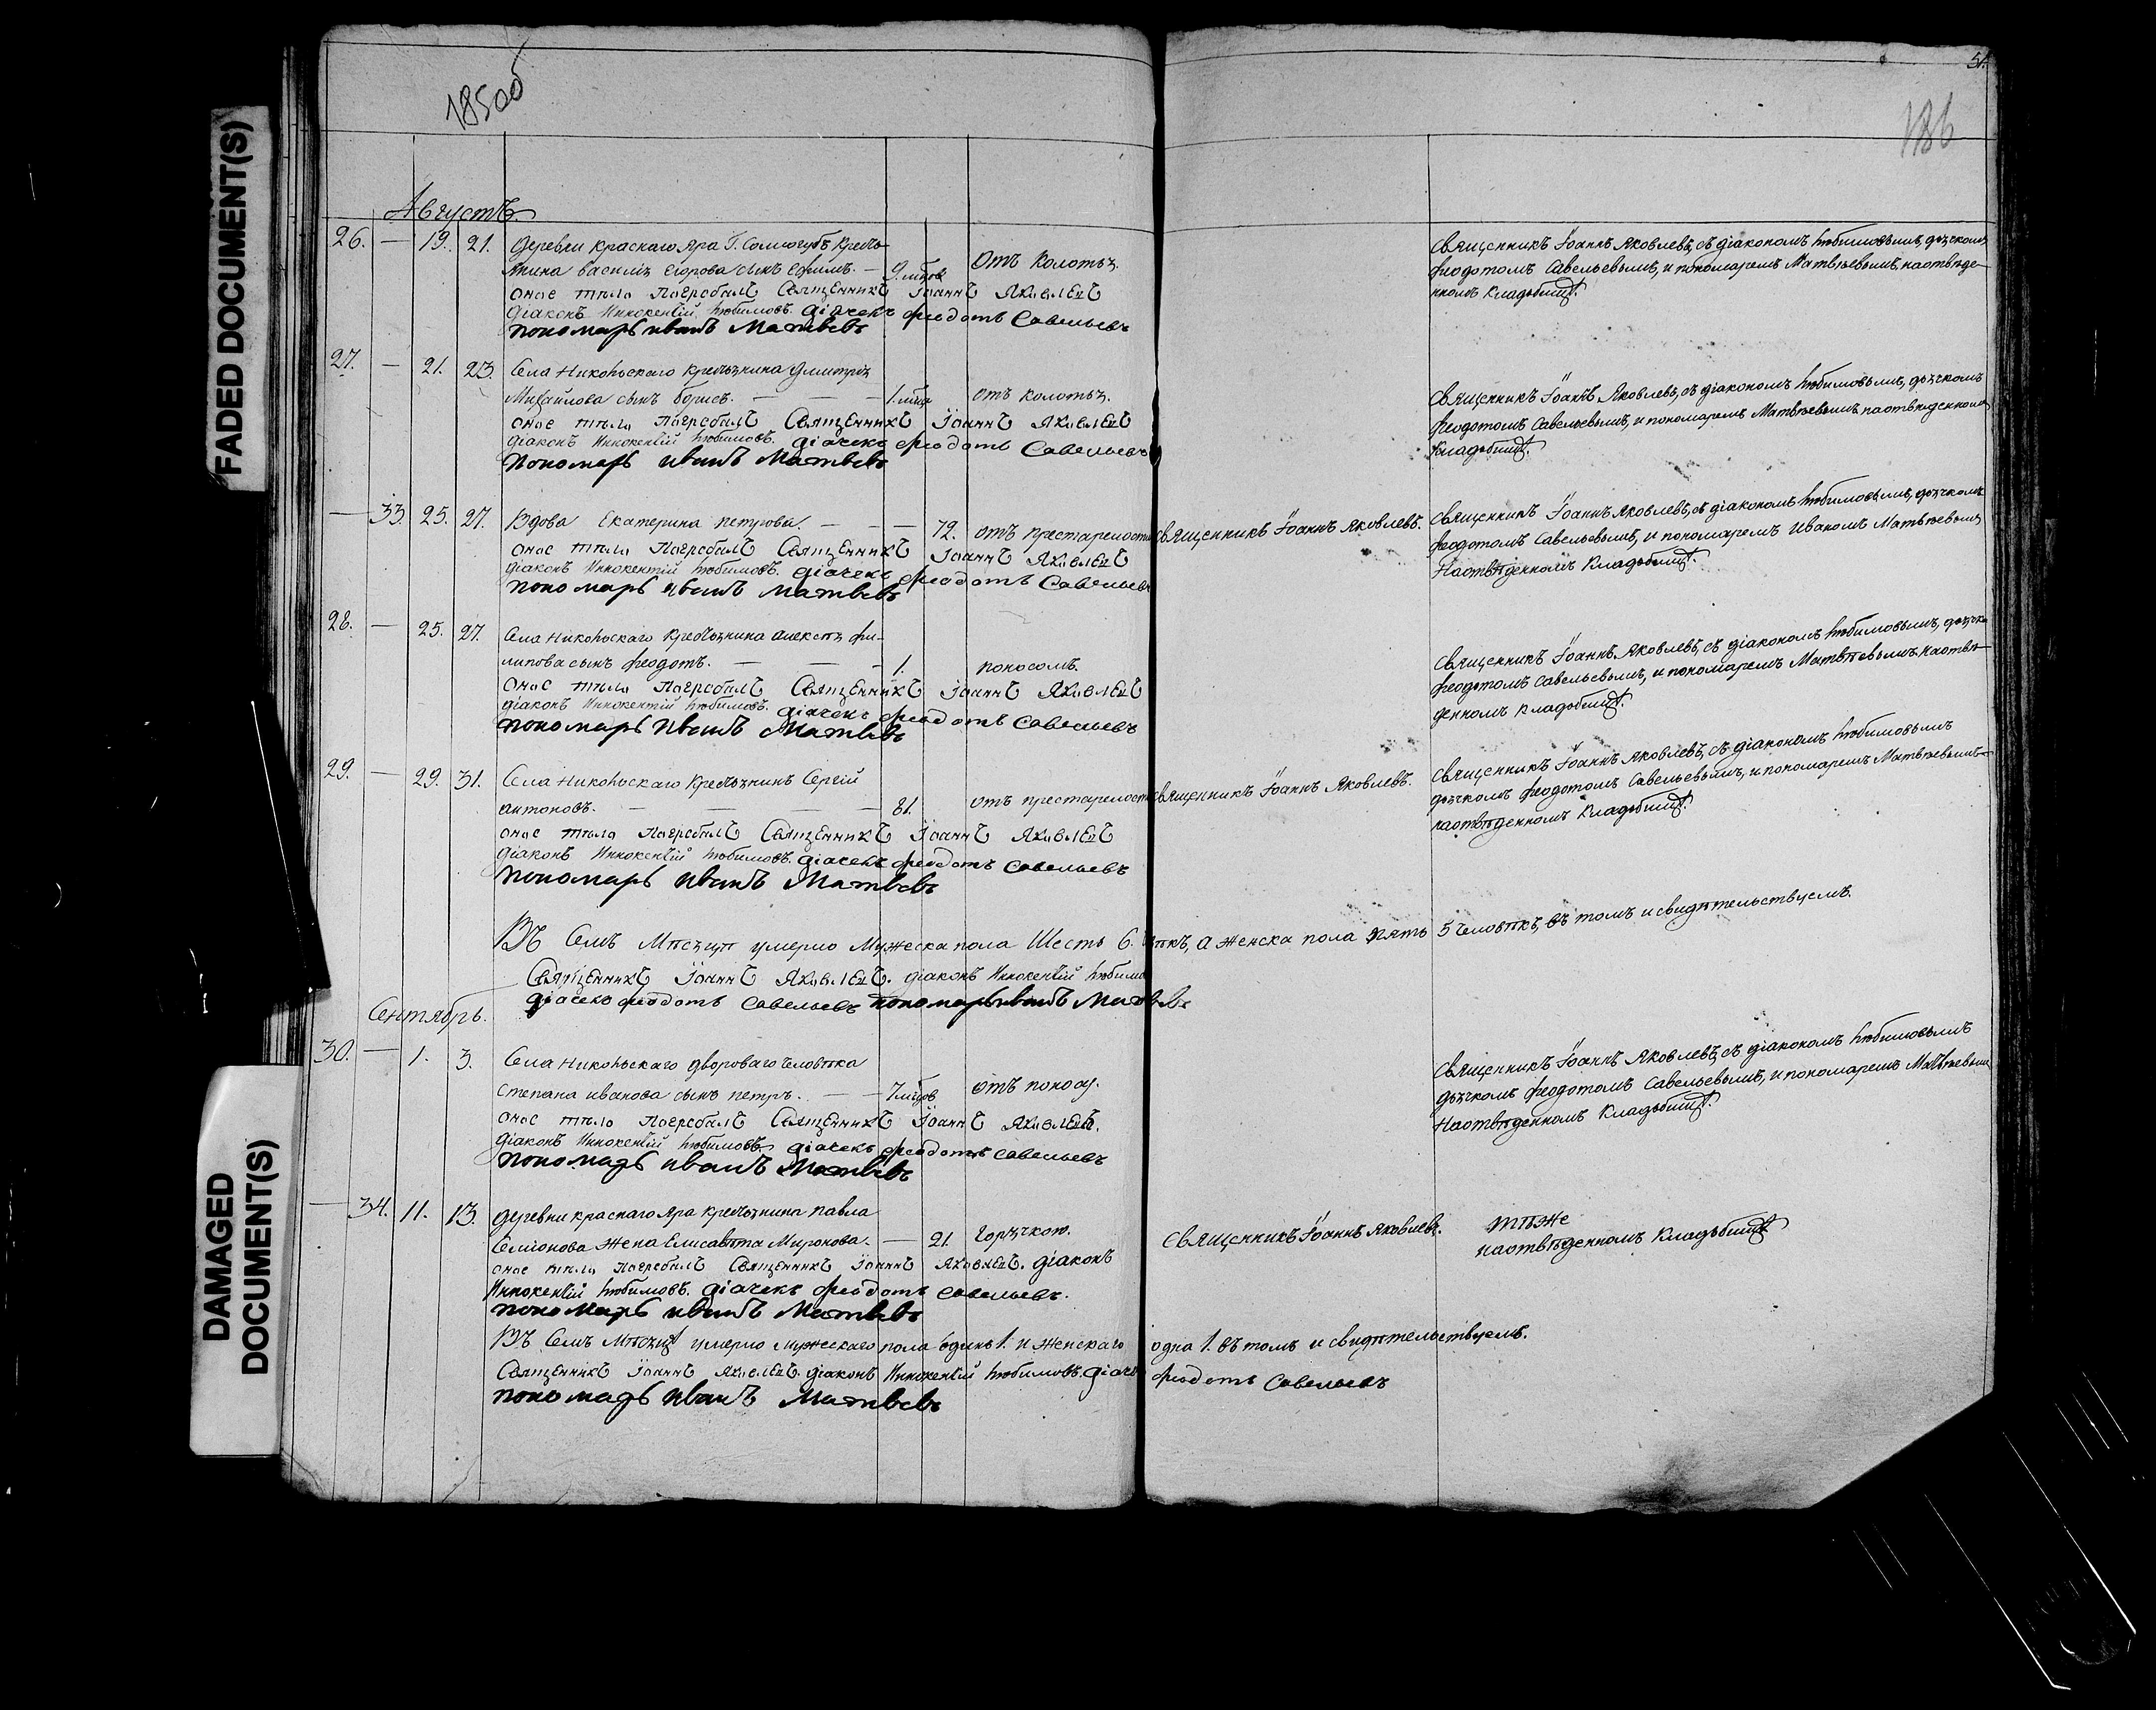 FADED DOCUMENT(S)
DAMAGED
DOCUMENT(S)
1850
186
51.
Августъ.
26. — 19. 21. Деревни Краснаго Яра Г. Крестья-
янина Василія Егорова сынъ Ефимъ. — отъ Колотья.
оное тѣло Погребалъ Священникъ Іоаннъ Яковлевъ
діаконъ Иннокентій Любимовъ. діачекъ Феодотъ Савельевъ
пономарь иванъ Матвевъ
Священникъ Іоаннъ Яковлевъ, съ діакономъ Любимовымъ, дьячкомъ
Феодотомъ Савельевымъ, и пономаремъ Матвѣевымъ, наотвѣде-
нномъ Кладбищѣ.
27. — 21. 23. Села Никольскаго Крестьянина Дмитрія
Михайлова сынъ борисъ. — — — отъ колотья.
оное тѣло Погребалъ Священникъ Іоаннъ Яковлевъ
діаконъ Иннокентій Любимовъ. діачекъ Феодотъ Савельевъ
пономарь иванъ Матвевъ
Священникъ Іоаннъ Яковлевъ, съ діакономъ Любимовымъ, дьячкомъ
Феодотомъ Савельевымъ, и пономаремъ Матвѣевымъ наотвѣденномъ
Кладбищѣ.
— 33. 25. 27. Вдова Екатерина петрова. — — — 72. отъ престарелости Священникъ Іоаннъ Яковлевъ.
оное тѣло Погребалъ Священникъ Іоаннъ Яковлевъ
діаконъ Иннокентій Любимовъ. діачекъ Феодотъ Савельевъ
пономарь иванъ Матвевъ
Священникъ Іоаннъ Яковлевъ, съ діакономъ Любимовымъ, дьячкомъ
Феодотомъ Савельевымъ, и пономаремъ Иваномъ Матвѣевымъ
Наотвѣденномъ Кладбищѣ.
28. — 25. 27. Села Никольскаго Крестьянина алексѣя фи-
липова сынъ феодотъ. — — — 1. поносомъ.
оное тѣло Погребалъ Священникъ Іоаннъ Яковлевъ
діаконъ Иннокентій Любимовъ. діачекъ Феодотъ Савельевъ
пономарь Иванъ Матвевъ
Священникъ Іоаннъ Яковлевъ, съ діакономъ Любимовымъ, дьячко
феодотомъ Савельевымъ, и пономаремъ Матвѣевымъ наотвѣ-
денномъ кладбищѣ.
29. — 29. 31. Села Никольскаго Крестьянинъ Сергій
антоновъ. — — — — 81. отъ престарелости Священникъ Іоаннъ Яковлевъ.
оное тѣло Погребалъ Священникъ Іоаннъ Яковлевъ
діаконъ Иннокентій Любимовъ. діачекъ феодотъ Савельевъ
пономарь иванъ Матвевъ
Священникъ Іоаннъ Яковлевъ, съ діакономъ Любимовымъ
дьячкомъ феодотомъ Савельевымъ, и пономаремъ Матвѣевымъ
наотвѣденномъ Кладбищѣ.
Въ Семъ Мѣсяцѣ умерло Мужеска пола Шесть 6. а женска пола пять 5 человѣкъ, въ томъ и свидѣтельствуемъ.
Священникъ Іоаннъ Яковлевъ. діаконъ Иннокентій Любимо
діачекъ феодотъ Савельевъ пономарь иванъ Матвевъ
Сентябрь.
30. — 1. 3. Села Никольскаго дворового человѣка
Степана иванова сынъ петръ. — — отъ поноса.
оное тѣло Погребалъ Священникъ Іоаннъ Яковлевъ.
діаконъ Иннокентій Любимовъ. діачекъ феодотъ савельевъ
пономарь иванъ Матвевъ
Священникъ Іоаннъ Яковлевъ, съ діакономъ Любимовымъ
дьячкомъ феодотомъ Савельевымъ, и пономаремъ Матвѣевымъ
Наотвѣденномъ Кладбищѣ.
— 34. 11. 13. Деревни краснаго Яра крестьянина павла
Семіонова жена Елисавѣта Миронова. — 21. Горячкою. Священникъ Іоаннъ Яковлевъ.
тѣже
наотвѣденномъ Кладбищѣ
оное тѣло Погребалъ Священникъ Іоаннъ Яковлевъ. діаконъ
Иннокентій Любимовъ. діачекъ феодотъ савельевъ.
пономарь иванъ Матвевъ
Въ Семъ Мѣсяцѣ умерло мужескаго пола одинъ 1. и женскаго одна 1. въ томъ и свидѣтельствуемъ.
Священникъ Іоаннъ Яковлевъ. діаконъ Иннокентій Любимовъ. діачекъ феодотъ Савельевъ
пономарь иванъ Матвевъ